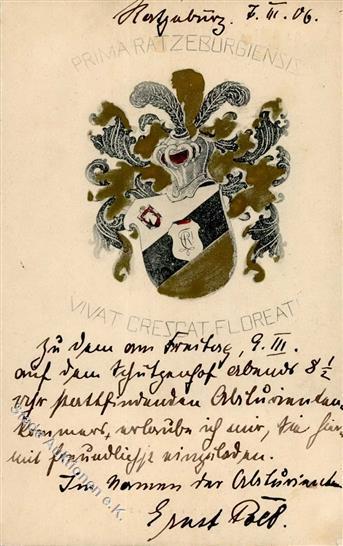 Ratzeburg. 7. III. 06.
PRIMA RATZEBURGIENSIS
CR
VIVAT CRESCAT FLOREAT!
Zu dem am Freitag, 9. III.
auf dem Schützenhof abends 8 1/2
Uhr stattfindenden Abiturienten-
Kommers, erlaube ich mir, Sie hier-
mit freundlichst einzuladen.
Im Namen der Abiturienten
Ernst
Auktionen e.K.